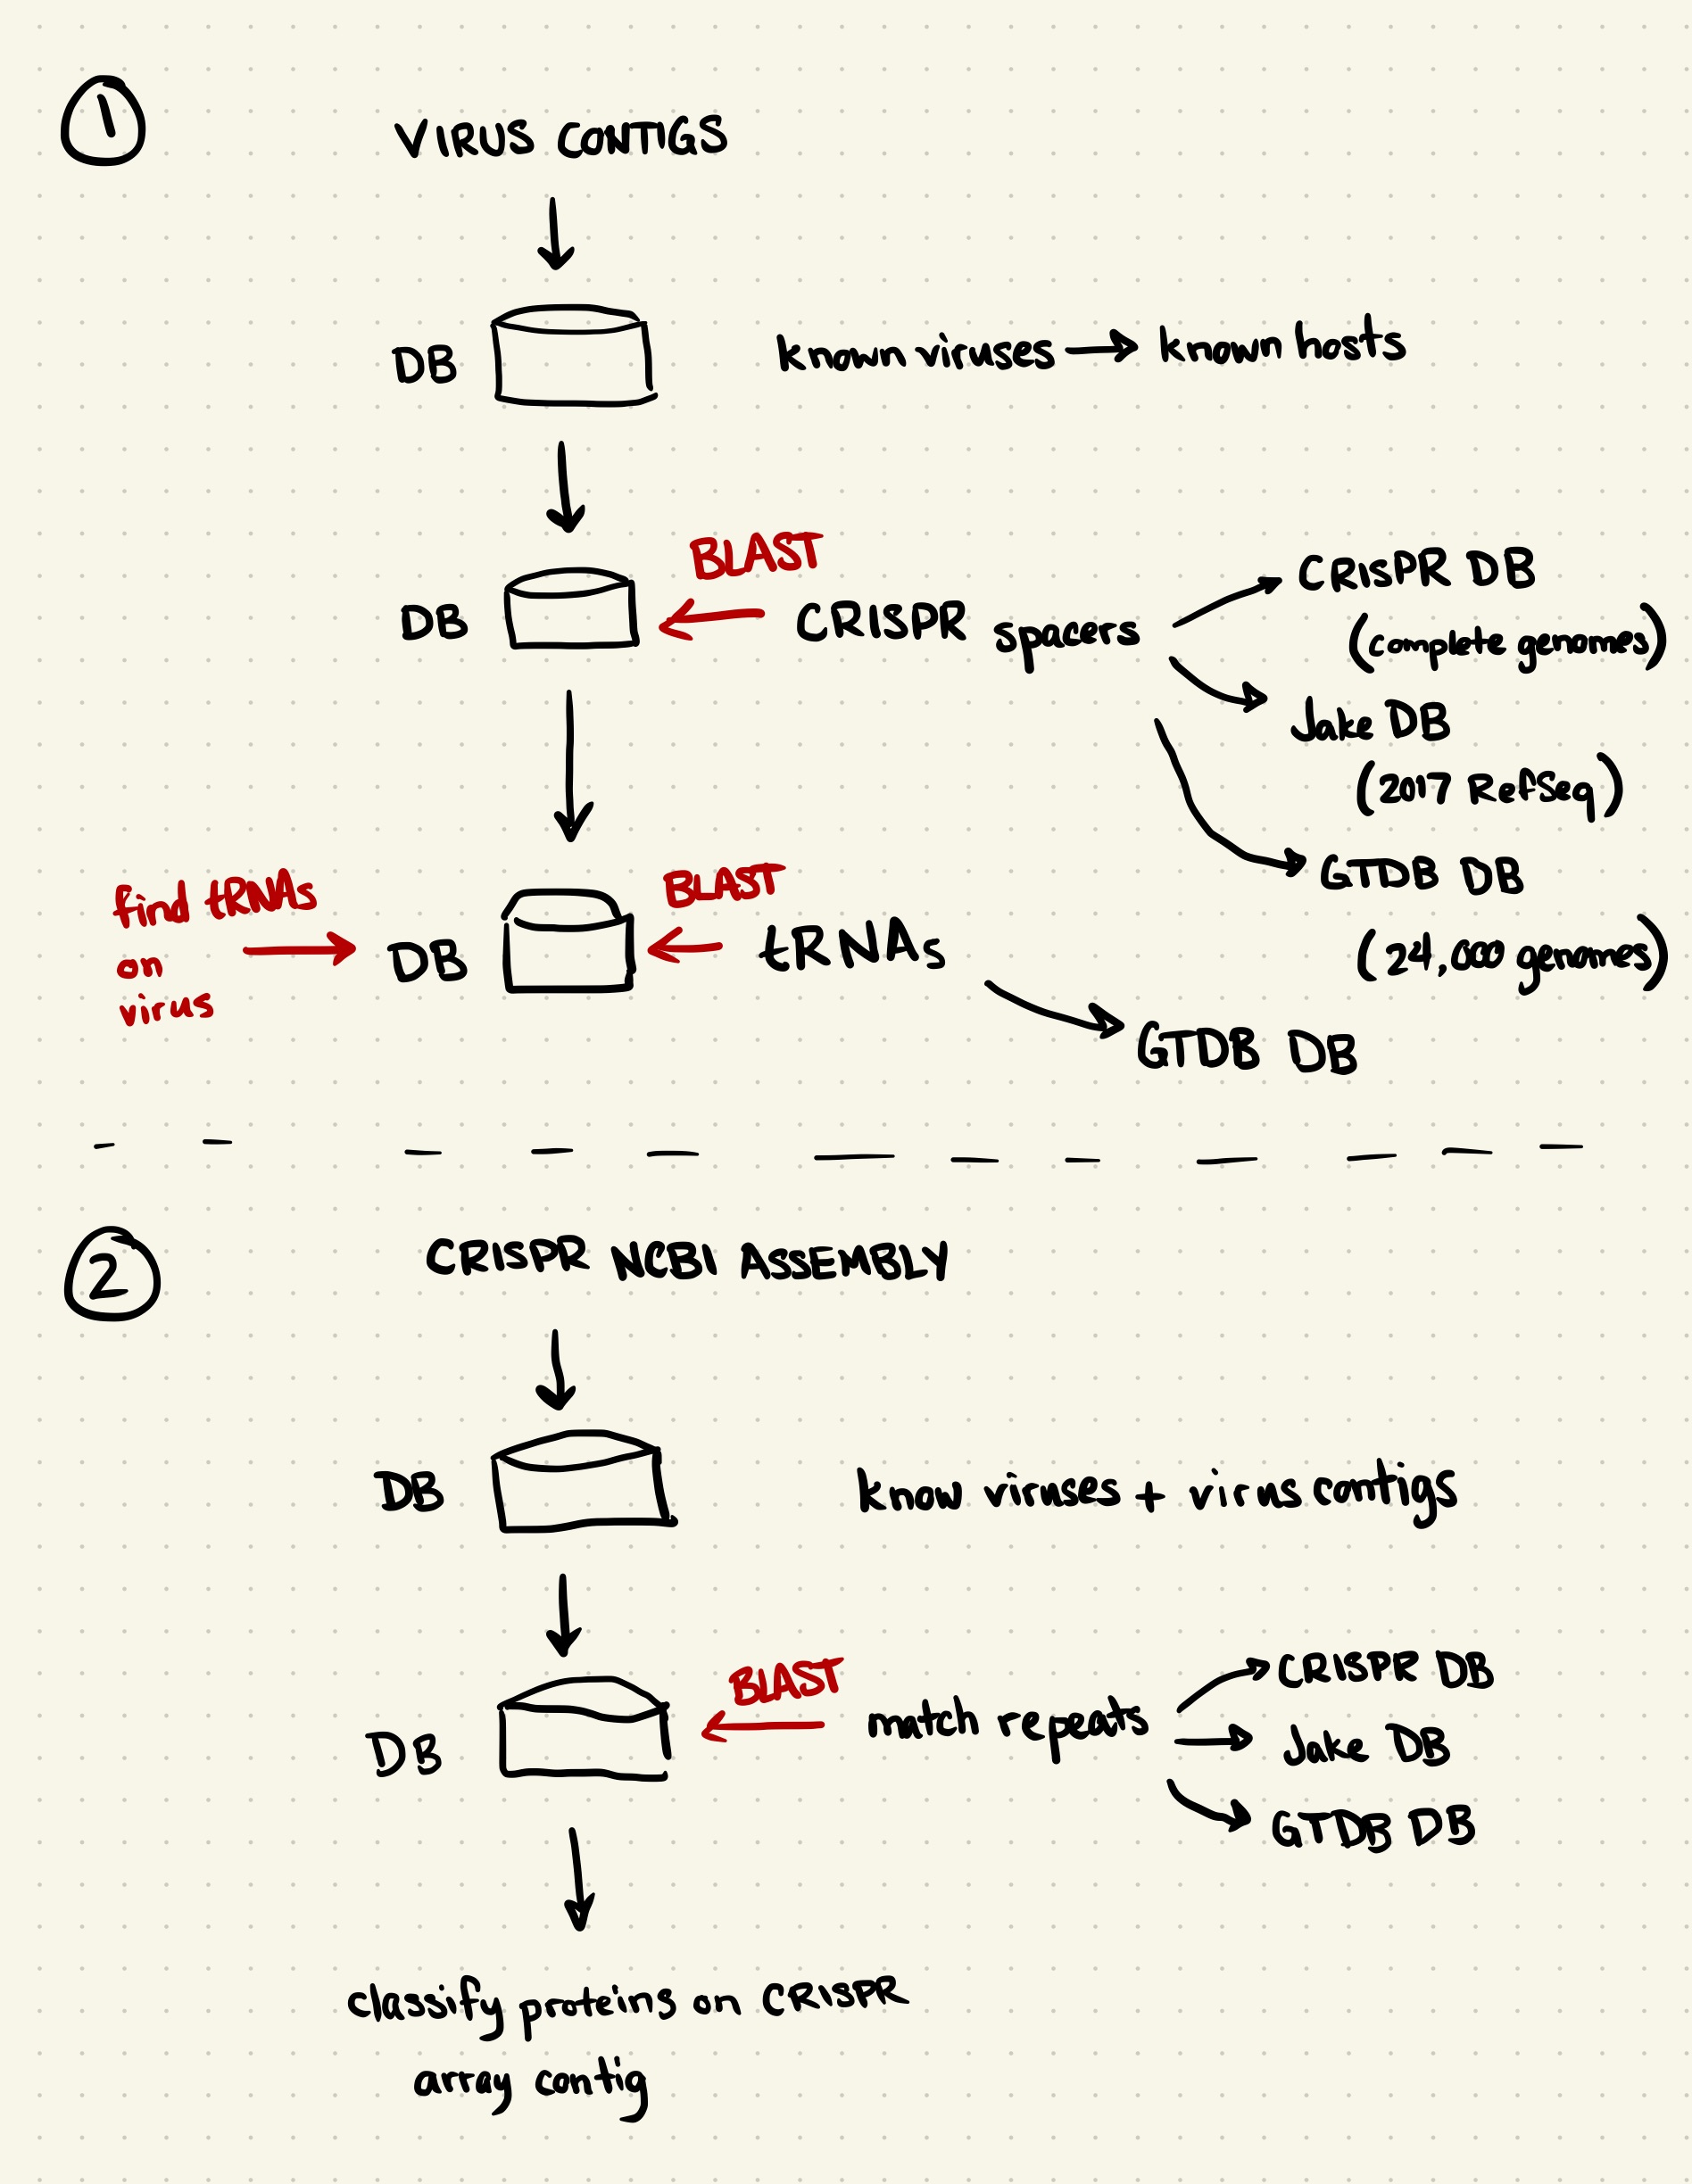 1
VIRUS CONTIGS
DB
known viruses → known hosts
BLAST
DB
CRISPR spacers
CRISPR DB
(complete genomes)
Jake DB
(2017 RefSeq)
GTDB DB
(24,000 genomes)
find tRNAs
on
virus
DB
BLAST
tRNAs
GTDB DB
2
CRISPR NCBI ASSEMBLY
DB
know viruses + virus contigs
DB
BLAST
match repeats
CRISPR DB
Jake DB
GTDB DB
classify proteins on CRISPR
array contig